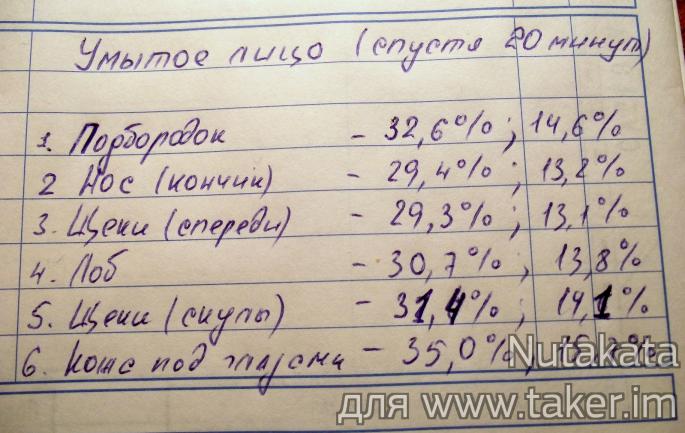 Умытое лицо (спустя 20 минут)
1. Подбородок - 32,6%; 14,6%
2 Нос (кончик) - 29,4%; 13,2%
3. Щеки (спереди) - 29,3%; 13,1%
4. Лоб - 30,7%; 13,8%
5. Щеки (скулы) - 31,4%; 14,1%
6. Кожа под глазами - 35,0%;
Nutakata
для www.taker.im